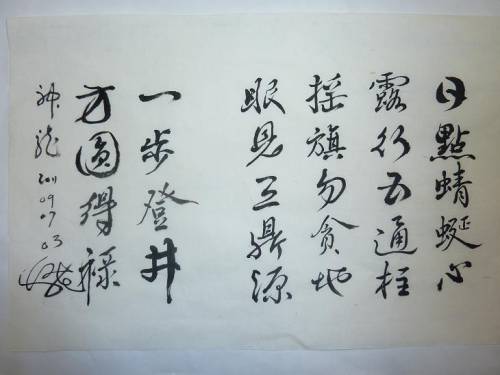 日點蜻蜓心
露行五通柱
摇旗勿貪地
眼見三鼎源
一步登井
方圓得祿
神龍 2011 09 07 03